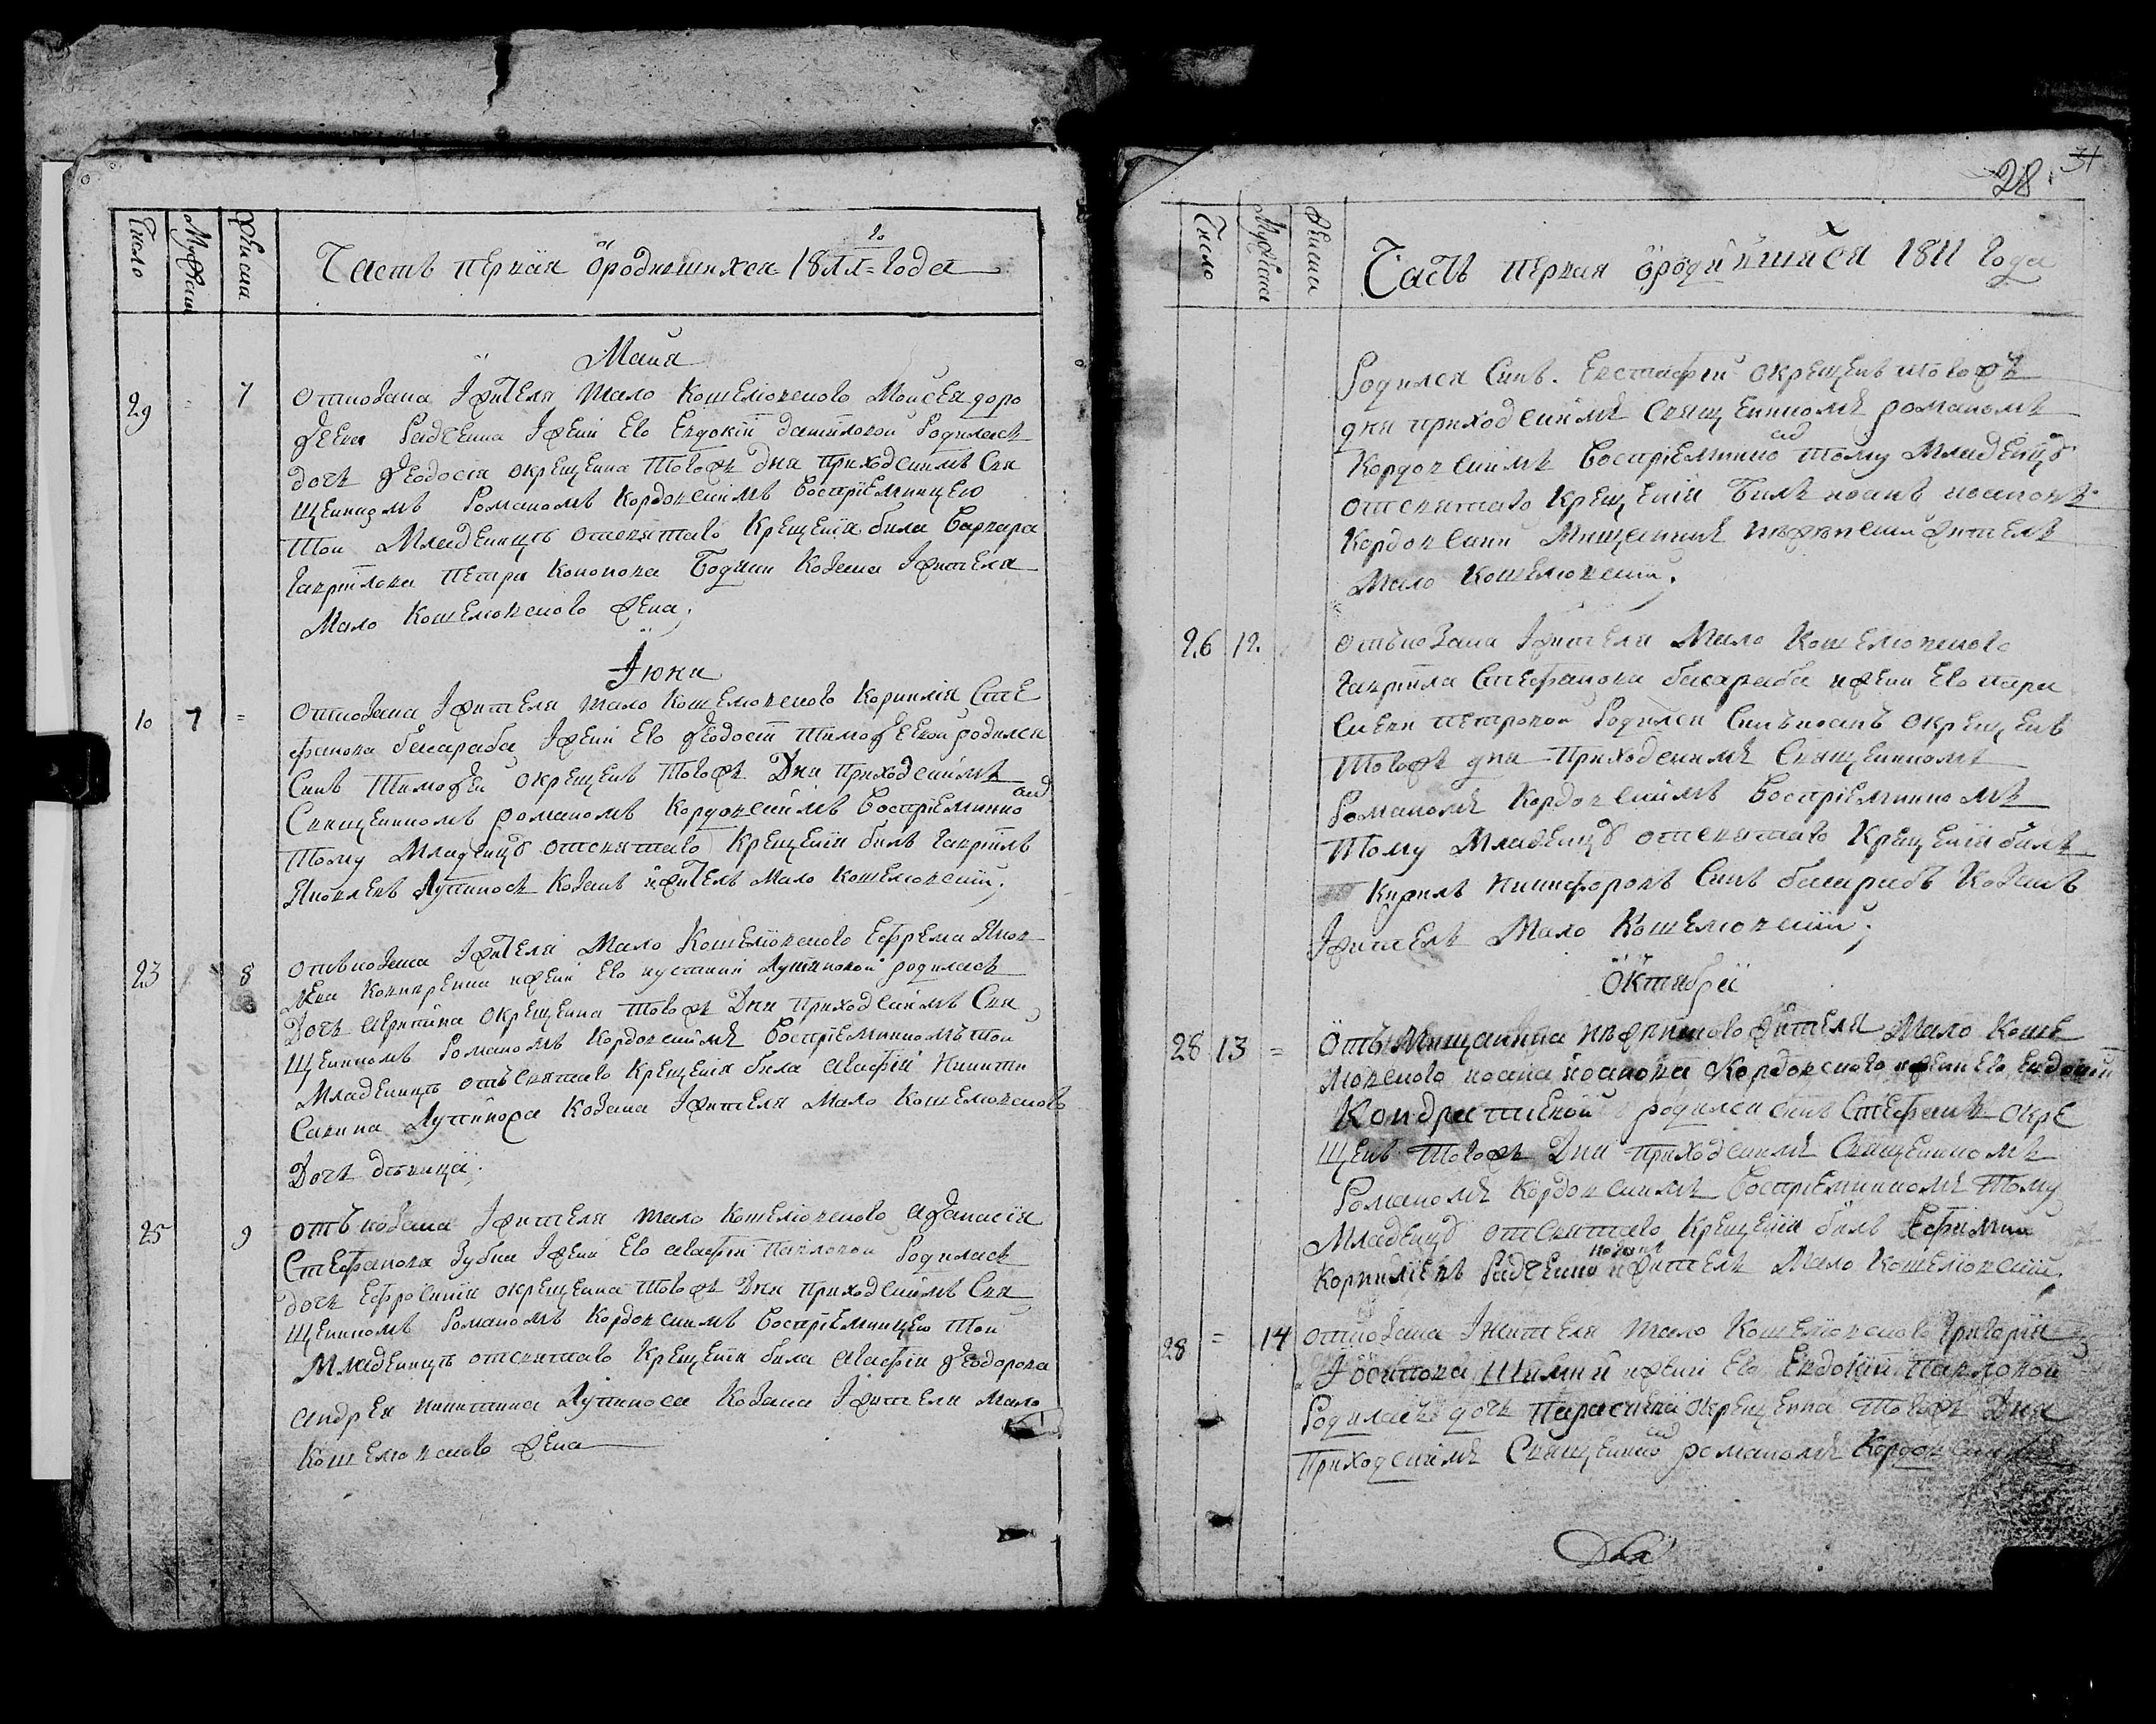 Число
Мужеска
Женска
Часть первая ородившихся 1811 = го года
Майя
29 = 7 отковака Іжителя Мало Кошелювского Мойсея доро
феева Радченка Іжени Ево Евдокіи даниловой Родилась
дочь феодосія окрещенна тогожъ дня приходскимъ Свя
щенникомъ Романомъ Кордовскимъ Воспріемницею
той Младенице отсвятаго Крещенія била Варвара
Гавріилова Петра Кононова Бодики Козака Іжителя
Мало Кошелювского жена;
Іюня
10 7 = откозака Іжителя Мало Кошелювского Корнилія Сте
фанова басараба Іжени Ево феодосіи Тимофеевой родился
Синъ Тимофей окрещенъ тогожъ Дня приходскимъ
Священникомъ романомъ Кордовскимъ Воспріемнико
Тому Младенцу отсвятаго Крещенія билъ Гавріилъ
Яковлевъ Лупиносъ Козакъ ижитель Мало Кошелювский;
23 8 отъкозака Іжителя Мало Кошелювского Ефрема Яков
лева ижени Ево Лупиновой родилась
Дочь окрещенна тогожъ Дня приходскимъ Свя
щенникомъ Романомъ Кордовскимъ Воспріемникомъ той
Младенице отъсвятаго Крещенія била Агафія Никити
Савина Козака Іжителя Мало Кошелювского
Дочь дѣвица;
25 9 отъ козака Іжителя Мало Кошелювского Афанасія
Стефанова Зубка Іжени Ево Агафіи Павловой Родилась
дочь Ефросинія окрещенна тогожъ Дня приходскимъ Свя
щенникомъ Романомъ Кордовскимъ Воспріемницею той
Младенице отсвятаго Крещенія била Агафія феодорова
андрея никитина Лупиноса Козака Іжителя Мало
Кошелювского жена
28 31
Число
Мужеска
Женска
Часть первая ородившияся 1811 Года
Родился Синъ. Евстафій окрещенъ тогожъ
дня приходскимъ Священникомъ романомъ
Кордовскимъ Воспріемнико Тому Младенцу
отсвятаго Крещенія билъ иоанъ иоановъ
Кордовский Мищанинъ нѣжинский житель
Мало Кошелювский;
26 12. отъкозака Іжителя Мало Кошелювского
Гавріила Стефанова басараба ижени Ево пара
скевы петровой Родился Синъ иоанъ окрещенъ
тогожъ дня приходскимъ Священникомъ
Романомъ Кордовскимъ Воспріемникомъ
Тому Младенцу отсвятаго Крещенія билъ
Кирилъ Никифоровъ Синъ басарабъ Козакъ
Іжитель Мало Кошелювский;
Октября
28 13 = Отъ Мищанина нѣжинского жителя Мало Коше
лювского иоана иоанова Кордовского ижени Ево Евдокіи
Кондратиевой родился синъ Стефанъ окре
щенъ тогожъ Дня приходскимъ Священникомъ
Романомъ Кордовскимъ Воспріемникомъ Тому
Младенцу отсвятаго Крещенія билъ Ефимий
Корнилиевъ Радченко козакъ ижитель Мало Кошелювский;
28 = 14 откозака Іжителя Мало Кошелювского Григорія
ижени Ево Евдокіи Павловой
Родилась дочь Параскева окрещенна тогожъ Дня
Приходскимъ Священнико романомъ Кордовскимъ